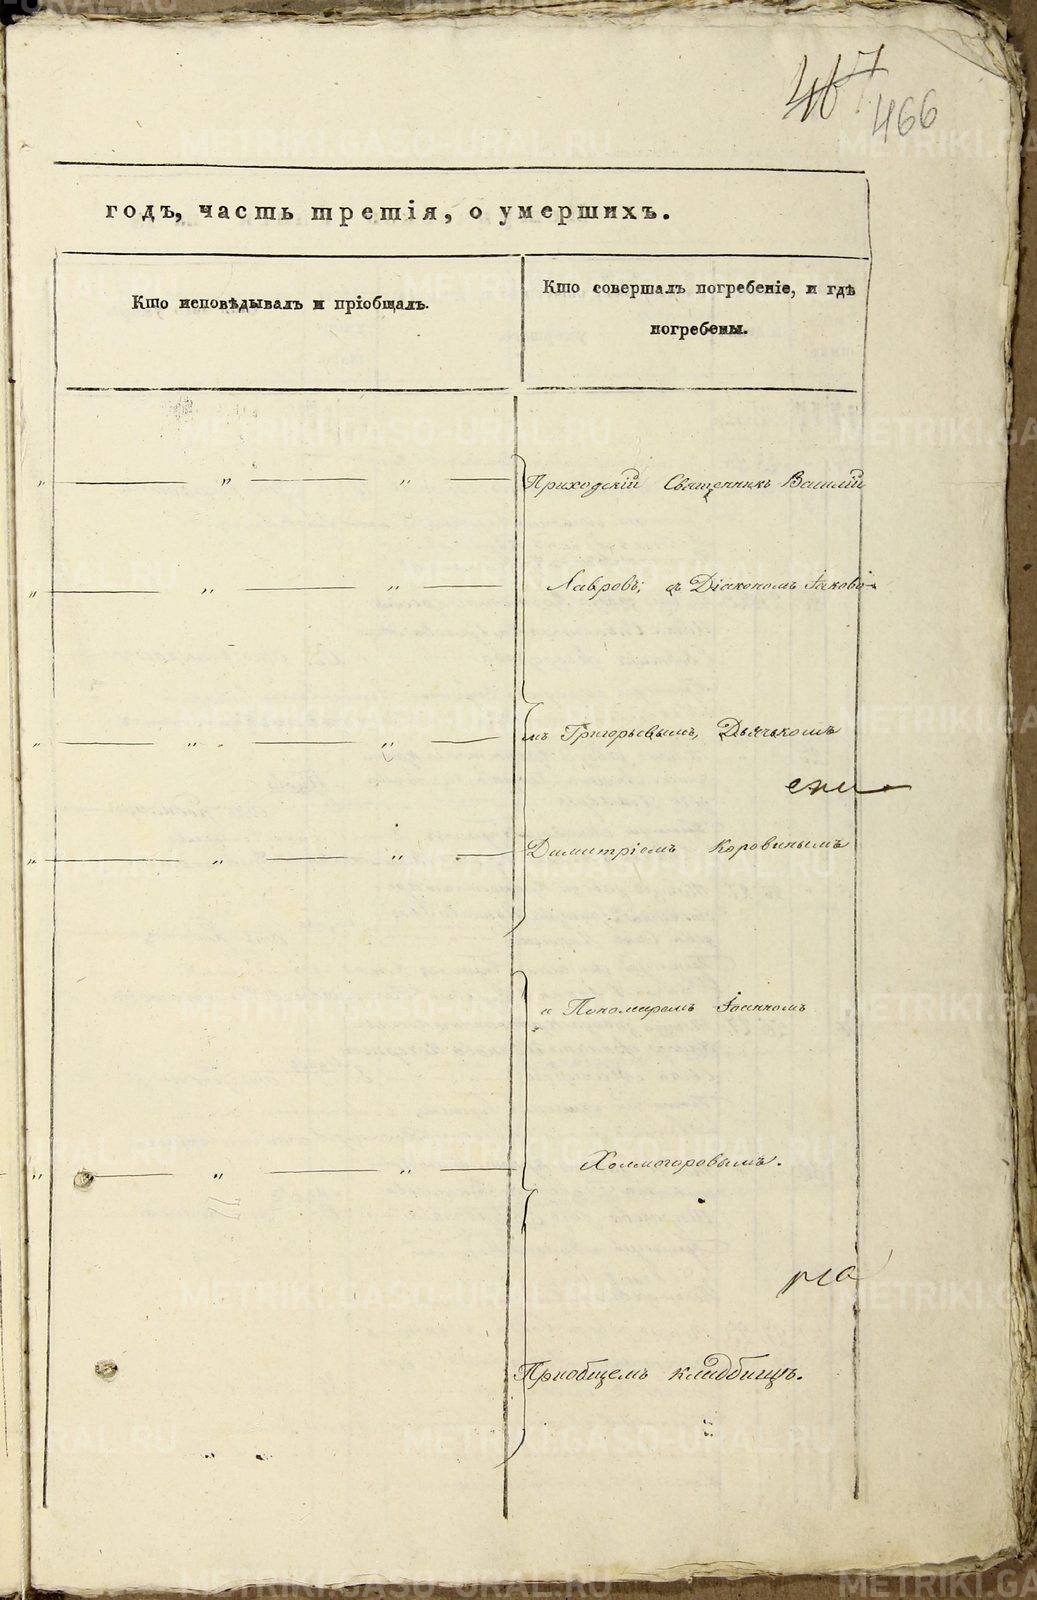 467
466
годъ, часть третія, о умершихъ.
Кто исповѣдывалъ и пріобщалъ.
Кто совершалъ погребеніе, и гдѣ
погребены.
" " "
Приходскій Священникъ Василій
" " "
Лавровъ, съ Діакономъ Іаково-
" " "
мъ Григорьевымъ, Дьячкомъ
" " "
Димитріемъ Коровинымъ
и Пономаремъ Іоанном
" " "
Холмогоровымъ.
Приобщемъ кладбищѣ.
METRIKI.GASO-URAL.RU